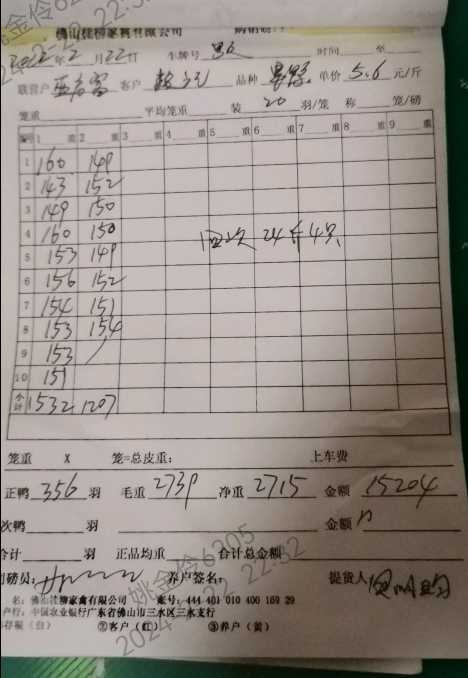 佛山佳柳家禽有限公司
2022年2月22日 车牌号 时间 至
联营户 客户 品种 单价 5.6 元/斤
笼重 平均笼重 装 20 羽/笼 称 笼/磅
1 重 2 重 3 重 4 重 5 重 6 重 7 重 8 重 9 重
1 160 149
2 143 152
3 149 150
4 160 150
5 153 149
6 156 152
7 154 151
8 153 154
9 153
10 151
合计 1532 1207
回次 24斤4只
笼重 X 笼=总皮重: 上车费
正鸭 356 羽 毛重 2739 净重 2715 金额 15204
次鸭 羽 金额
合计 羽 正品均重 合计总金额
司磅员: 养户签名: 提货人
名: 佛山佳柳家禽有限公司 账号: 444 401 010 400 169 29
户行: 中国农业银行广东省佛山市三水区三水支行
存根 (白) ②客户 (红) ③养户 (黄)
姚金伶6305
2024-2-22 22:32